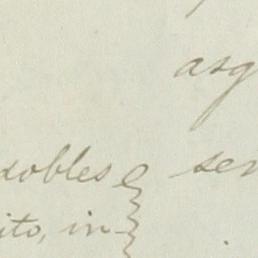 asg
dobles ser
ito, in-